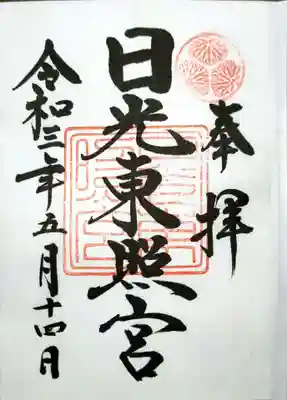 奉拝
日光東照宮
令和三年五月十四日